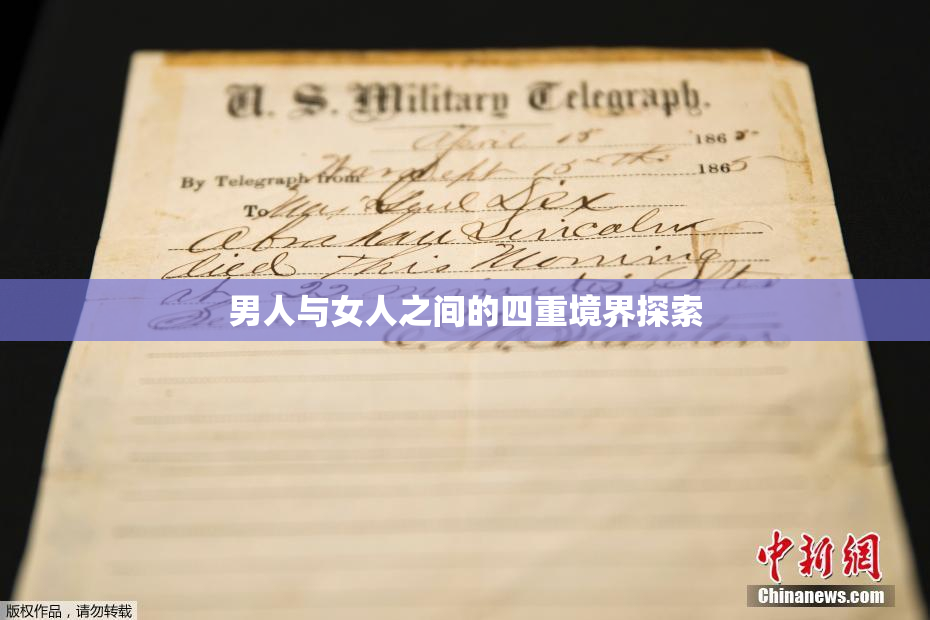 U. S. Military Telegraph.
April 15 1865
By Telegraph from War Dept 15th 1865
To Maj Genl Dix
Abraham Lincoln
died This Morning
at 22 minutes after
男人与女人之间的四重境界探索
E. M. Stanton
中新网
Chinanews.com
版权作品，请勿转载